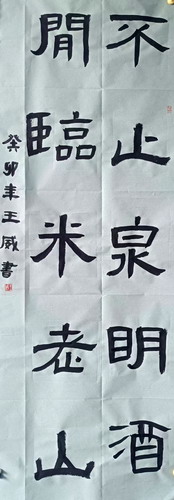 不止泉明酒
閒臨米老山
癸卯年王威書